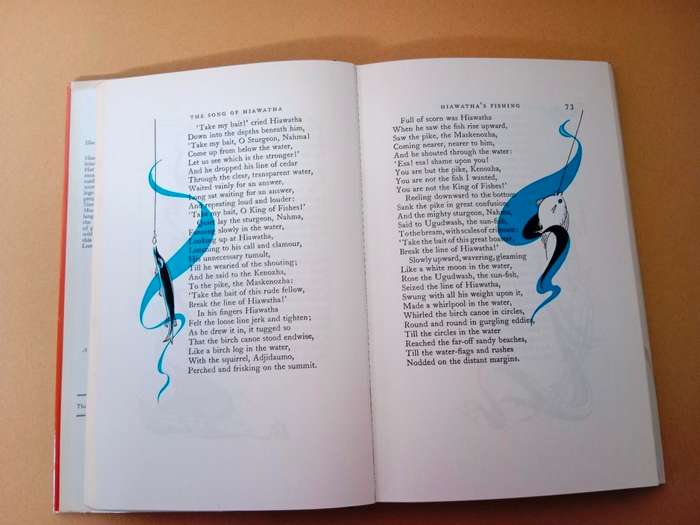 THE SONG OF HIAWATHA
'Take my bait!' cried Hiawatha
Down into the depths beneath him,
'Take my bait, O Sturgeon, Nahma!
Come up from below the water,
Let us see which is the stronger!'
And he dropped his line of cedar
Through the clear, transparent water,
Waited vainly for an answer,
Long sat waiting for an answer,
And repeating loud and louder:
'Take my bait, O King of Fishes!'
Quiet lay the sturgeon, Nahma,
Fanning slowly in the water,
Looking up at Hiawatha,
Listening to his call and clamour,
His unnecessary tumult,
Till he wearied of the shouting;
And he said to the Kenozha,
To the pike, the Maskenozha:
'Take the bait of this rude fellow,
Break the line of Hiawatha!'
In his fingers Hiawatha
Felt the loose line jerk and tighten;
As he drew it in, it tugged so
That the birch canoe stood endwise,
Like a birch log in the water,
With the squirrel, Adjidaumo,
Perched and frisking on the summit.
HIAWATHA'S FISHING 73
Full of scorn was Hiawatha
When he saw the fish rise upward,
Saw the pike, the Maskenozha,
Coming nearer, nearer to him,
And he shouted through the water:
'Esa! esa! shame upon you!
You are but the pike, Kenozha,
You are not the fish I wanted,
You are not the King of Fishes!'
Reeling downward to the bottom
Sank the pike in great confusion,
And the mighty sturgeon, Nahma,
Said to Ugudwash, the sun-fish,
To the bream, with scales of crimson:
'Take the bait of this great boaster,
Break the line of Hiawatha!'
Slowly upward, wavering, gleaming
Like a white moon in the water,
Rose the Ugudwash, the sun-fish,
Seized the line of Hiawatha,
Swung with all his weight upon it,
Made a whirlpool in the water,
Whirled the birch canoe in circles,
Round and round in gurgling eddies,
Till the circles in the water
Reached the far-off sandy beaches,
Till the water-flags and rushes
Nodded on the distant margins.